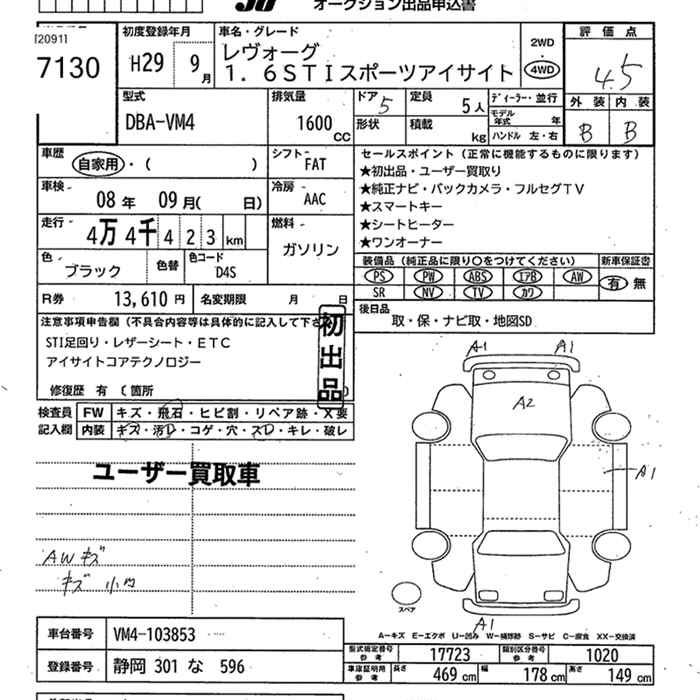 オークション出品申込書
120911
7130
初度登録年月
H29 9月
車名・グレード
レヴォーグ
1.6STIスポーツアイサイト
2WD
4WD
評価点
4.5
外装 内装
B B
型式
DBA-VM4
排気量
1600 CC
ドア 5
形状
定員 5人
積載 kg
ディーラー・並行
モデル年式 年
ハンドル 左・右
車歴
自家用・( )
シフト FAT
車検
08年 09月( 日)
冷房 AAC
走行
4万4千423km
燃料
ガソリン
色
ブラック
色替
色コード
D4S
セールスポイント(正常に機能するものに限ります)
★初出品・ユーザー買取り
★純正ナビ・バックカメラ・フルセグTV
★スマートキー
★シートヒーター
★ワンオーナー
装備品(純正品に限り○をつけてください) 新車保証書
PS PW ABS エアB AW 有 無
SR NV TV カワ
R券 13,610円
名変期限 月 日
後日品
取・保・ナビ取・地図SD
注意事項申告欄(不具合内容等は具体的に記入して下さ
STI足回り・レザーシート・ETC
アイサイトコアテクノロジー
修復歴 有 (箇所 )
初出品
検査員記入欄
FW キズ・飛石・ヒビ割・リペア跡・X要
内装 キズ・汚レ・コゲ・穴・スレ・キレ・破レ
ユーザー買取車
AWキズ
キズ 小凹
A1 A1
A2
A1
A1
スペア
A−キズ E−エクボ U−凹み W−補修跡 S−サビ C−腐食 XX−交換済
車台番号 VM4-103853
登録番号 静岡 301 な 596
型式指定番号 参考 17723
類別区分番号 参考 1020
車庫証明用 参考 長さ 469 cm 幅 178 cm 高さ 149 cm